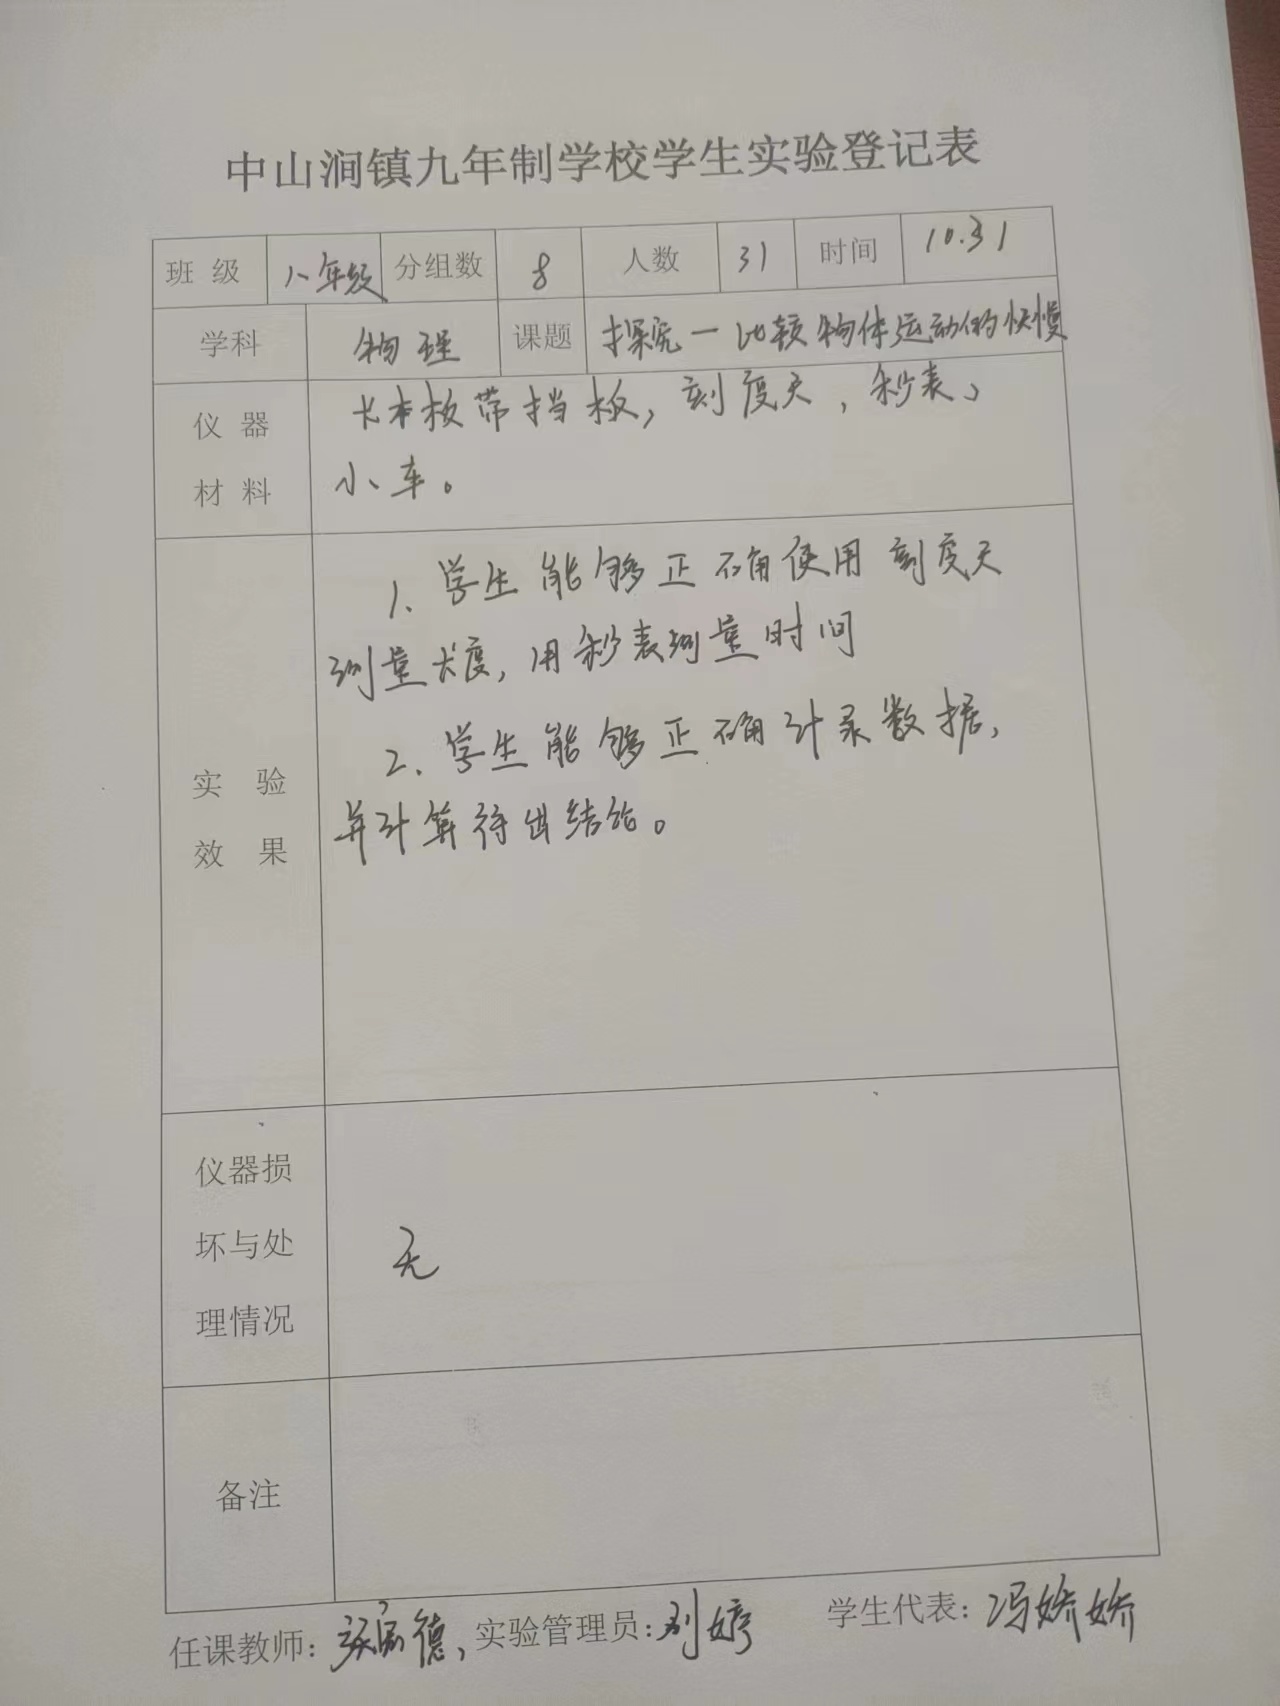 中山涧镇九年制学校学生实验登记表
班 级 八年级 分组数 8 人数 31 时间 10.31
学科 物理 课题 探究一比较物体运动的快慢
仪 器 长木板带挡板,刻度尺,秒表、
材 料 小车。
1. 学生能够正确使用刻度尺
测量长度,用秒表测量时间
2. 学生能够正确计录数据,
实 验 并计算得出结论。
效 果
仪器损
坏与处 无
理情况
备注
任课教师: 德, 实验管理员: 刘婷 学生代表: 冯娇娇